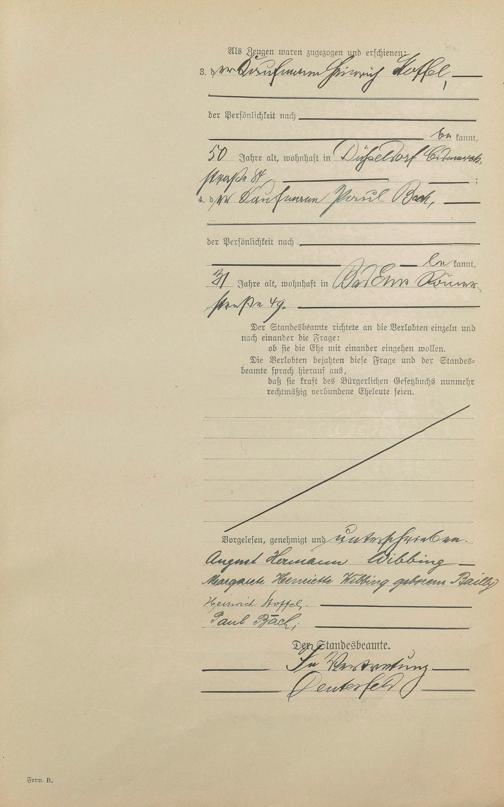 Als Zeugen waren zugezogen und erschienen:
3. der Kaufmann Heinrich Stoffel,
der Persönlichkeit nach
be kannt,
50 Jahre alt, wohnhaft in Düsseldorf
straße 87 ;
4. der Kaufmann Paul Bach,
der Persönlichkeit nach
be kannt,
31 Jahre alt, wohnhaft in Bad Ems Römer-
straße 49.
Der Standesbeamte richtete an die Verlobten einzeln und
nach einander die Frage:
ob sie die Ehe mit einander eingehen wollen.
Die Verlobten bejahten diese Frage und der Standes-
beamte sprach hierauf aus,
daß sie kraft des Bürgerlichen Gesetzbuchs nunmehr
rechtmäßig verbundene Eheleute seien.
Vorgelesen, genehmigt und unterschrieben.
August Hermann Wibbing
Margarete Henriette Wibbing geborene Bailly
Heinrich Stoffel.
Paul Bach,
Der Standesbeamte.
In Vertretung
Form. B.